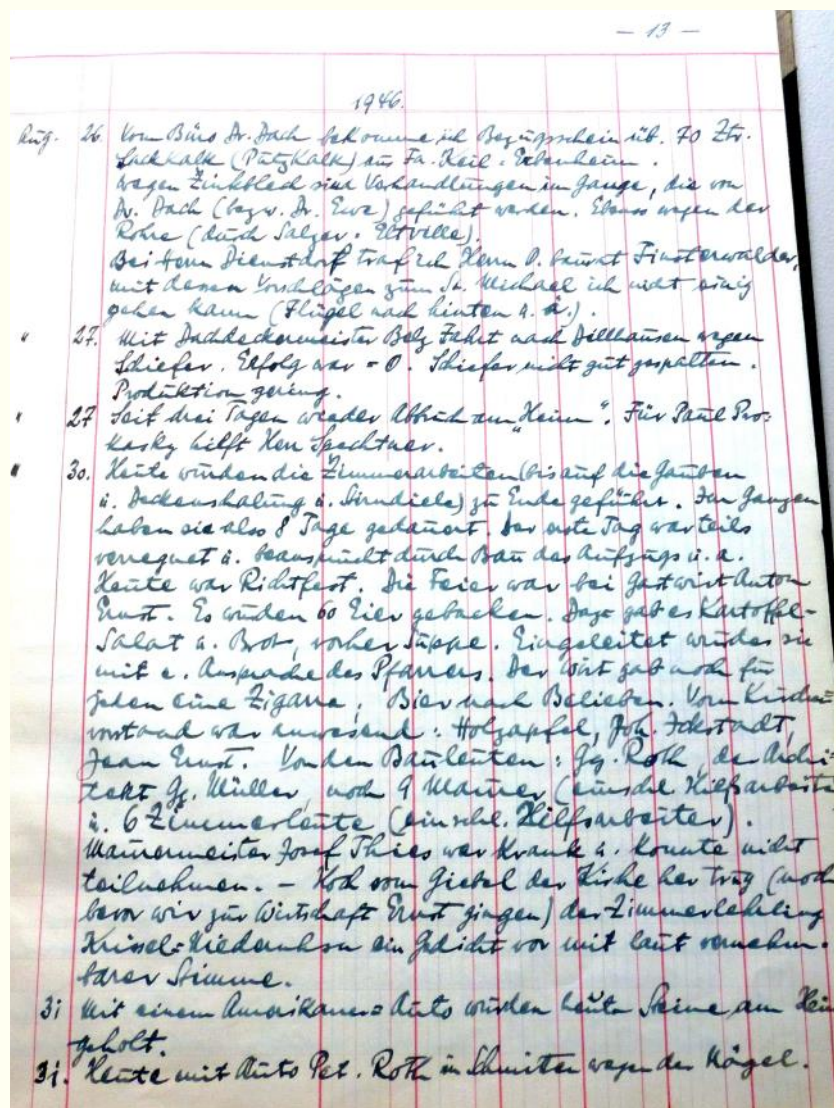 — 13 —
1946.
Aug. 26. Vom Büro Dr. Dach bekomme ich Bezugsschein üb. 70 Ztr.
Sackkalk (Putzkalk) an Fa. Keil - Erbenheim.
Wegen Zinkblech sind Verhandlungen im Gange, die von
Dr. Dach (bezw. Dr. Ewe) geführt werden. Ebenso wegen der
Rohre (durch Salzer - Eltville).
Bei Herrn Dienstdorf traf ich Herrn O. baurat Finsterwalder,
mit dessen Vorschlägen zum St. Michael ich nicht einig
gehen kann (Flügel nach hinten u. ä.).
" 27. Mit Dachdeckermeister Belz Fahrt nach Dillhausen wegen
Schiefer. Erfolg war = 0. Schiefer nicht gut gespalten.
Produktion gering.
" 27 Seit drei Tagen wieder Abbruch am „Heim". Für Paul Pro-
kasky hilft Herr Spechtner.
" 30. Heute wurden die Zimmerarbeiten (bis auf die Gauben
u. Deckenschalung u. Stirndiele) zu Ende geführt. Im Ganzen
haben sie also 8 Tage gedauert. Der erste Tag war teils
verregnet u. beansprucht durch Bau des Aufzugs u. a.
Heute war Richtfest. Die Feier war bei Gastwirt Anton
Ernst. Es wurden 60 Eier gebacken. Dazu gab es Kartoffel-
Salat u. Brot, vorher Suppe. Eingeleitet wurde sie
mit e. Ansprache des Pfarrers. Der Wirt gab noch für
jeden eine Zigarre, Bier nach Belieben. Vom Kirchen=
vorstand war anwesend: Holzapfel, Joh. Ickstadt,
Jean Ernst. Von den Bauleuten: Gg. Roth, der Archi-
tekt Gg. Müller, noch 9 Maurer (einschl. Hilfsarbeiter
u. 6 Zimmerleute (einschl. Hilfsarbeiter).
Maurermeister Josef Thies war krank u. konnte nicht
teilnehmen. – Hoch vom Giebel der Kirche her trug (noch
bevor wir zur Wirtschaft Ernst gingen) der Zimmerlehrling
Krissel=Niedernhsn ein Gedicht vor mit laut vernehm-
barer Stimme.
31 Mit einem Amerikaner=Auto wurden heute Steine am Heim
geholt.
31. Heute mit Auto Pet. Roth in Schmitten wegen der Nägel.